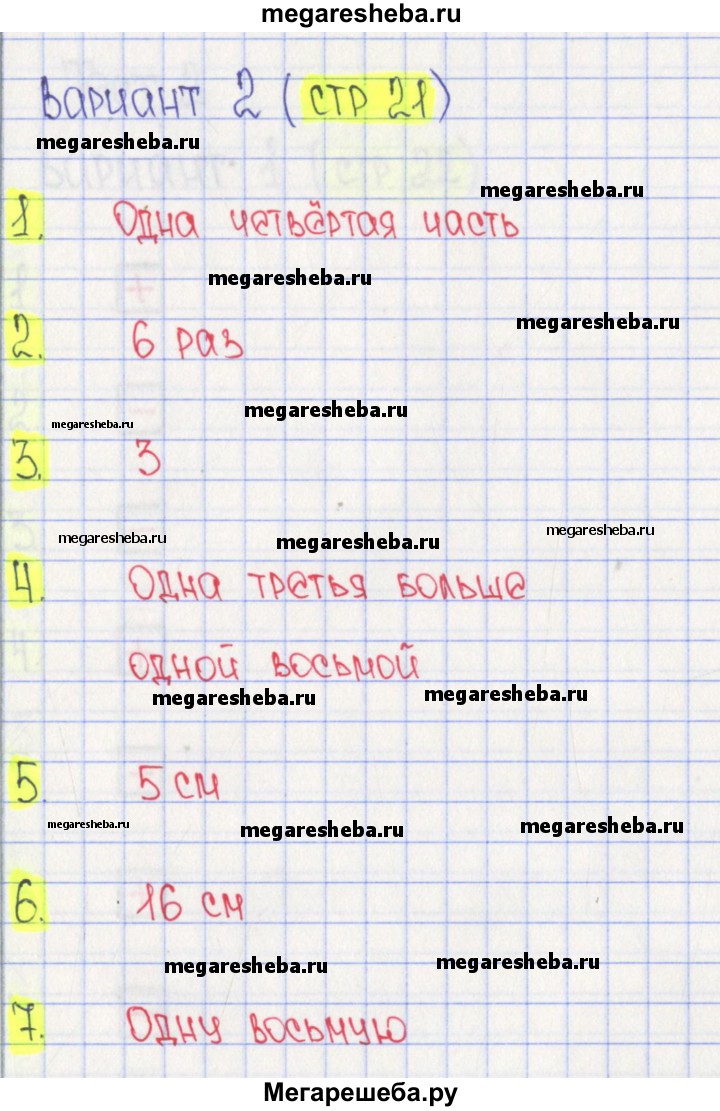 megaresheba.ru
Вариант 2 (стр 21)
megaresheba.ru
megaresheba.ru
1. Одна четвёртая часть
megaresheba.ru
megaresheba.ru
2. 6 раз
megaresheba.ru
megaresheba.ru
3. 3
megaresheba.ru
megaresheba.ru
megaresheba.ru
4. Одна третья больше
одной восьмой
megaresheba.ru
megaresheba.ru
5. 5 см
megaresheba.ru
megaresheba.ru
megaresheba.ru
6. 16 см
megaresheba.ru
megaresheba.ru
7. Одну восьмую
Мегарешеба.ру